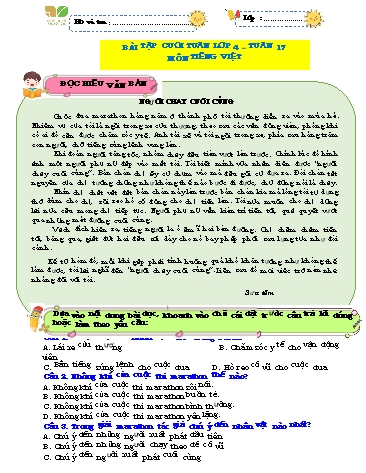 Họ và tên:
Lớp :
BÀI TẬP CUỐI TUẦN LỚP 4 – TUẦN 17
MÔN TIẾNG VIỆT
ĐỌC HIỂU VĂN BẢN
NGƯỜI CHẠY CUỐI CÙNG
Cuộc đua marathon hàng năm ở thành phố tôi thường diễn ra vào mùa hè.
Nhiệm vụ của tôi là ngồi trong xe cứu thương, theo sau các vận động viên, phòng khi
có ai đó cần được chăm sóc y tế. Anh tài xế và tôi ngồi trong xe, phía sau hàng trăm
con người, chờ tiếng súng lệnh vang lên.
Khi đoàn người tăng tốc, nhóm chạy đầu tiên vượt lên trước. Chính lúc đó hình
ảnh một người phụ nữ đập vào mắt tôi. Tôi biết mình vừa nhận diện được "người
chạy cuối cùng". Bàn chân chị ấy cứ chụm vào mà đầu gối cứ đưa ra. Đôi chân tật
nguyền của chị tưởng chừng như không thể nào bước đi được, chứ đừng nói là chạy.
Nhìn chị chật vật đặt bàn chân này lên trước bàn chân kia mà lòng tôi tự dưng
thở dùm cho chị, rồi reo hò cổ động cho chị tiến lên. Tôi nửa muốn cho chị dừng
lại nửa cầu mong chị tiếp tục. Người phụ nữ vẫn kiên trì tiến tới, quả quyết vượt
qua những mét đường cuối cùng.
Vạch đích hiện ra, tiếng người la ó ầm ĩ hai bên đường. Chị chầm chậm tiến
tới, băng qua, giật đứt hai đầu sợi dây cho nó bay phấp phới sau lưng tựa như đôi
cánh.
Kể từ hôm đó, mỗi khi gặp phải tình huống quá khó khăn tưởng như không thể
làm được, tôi lại nghĩ đến "người chạy cuối cùng". Liền sau đó mọi việc trở nên nhẹ
nhàng đối với tôi.
Sưu tầm
Dựa vào nội dung bài đọc, khoanh vào chữ cái đặt trước câu trả lời đúng
hoặc làm theo yêu cầu:
A. Lái xe cứu thương B. Chăm sóc y tế cho vận động
viên
C. Bắn tiếng súng lệnh cho cuộc đua D. Hò reo cổ vũ cho cuộc đua
Câu 2. Không khí của cuộc thi marathon thế nào?
A. Không khí của cuộc thi marathon sôi nổi.
B. Không khí của cuộc thi marathon buồn tẻ.
C. Không khí của cuộc thi marathon bình thường.
D. Không khí của cuộc thi marathon yên lặng.
Câu 3. Trong giải marathon tác giả chú ý đến nhân vật nào nhất?
A. Chú ý đến những người xuất phát đầu tiên
B. Chú ý đến những người chạy theo để cổ vũ
C. Chú ý đến người xuất phát cuối cùng